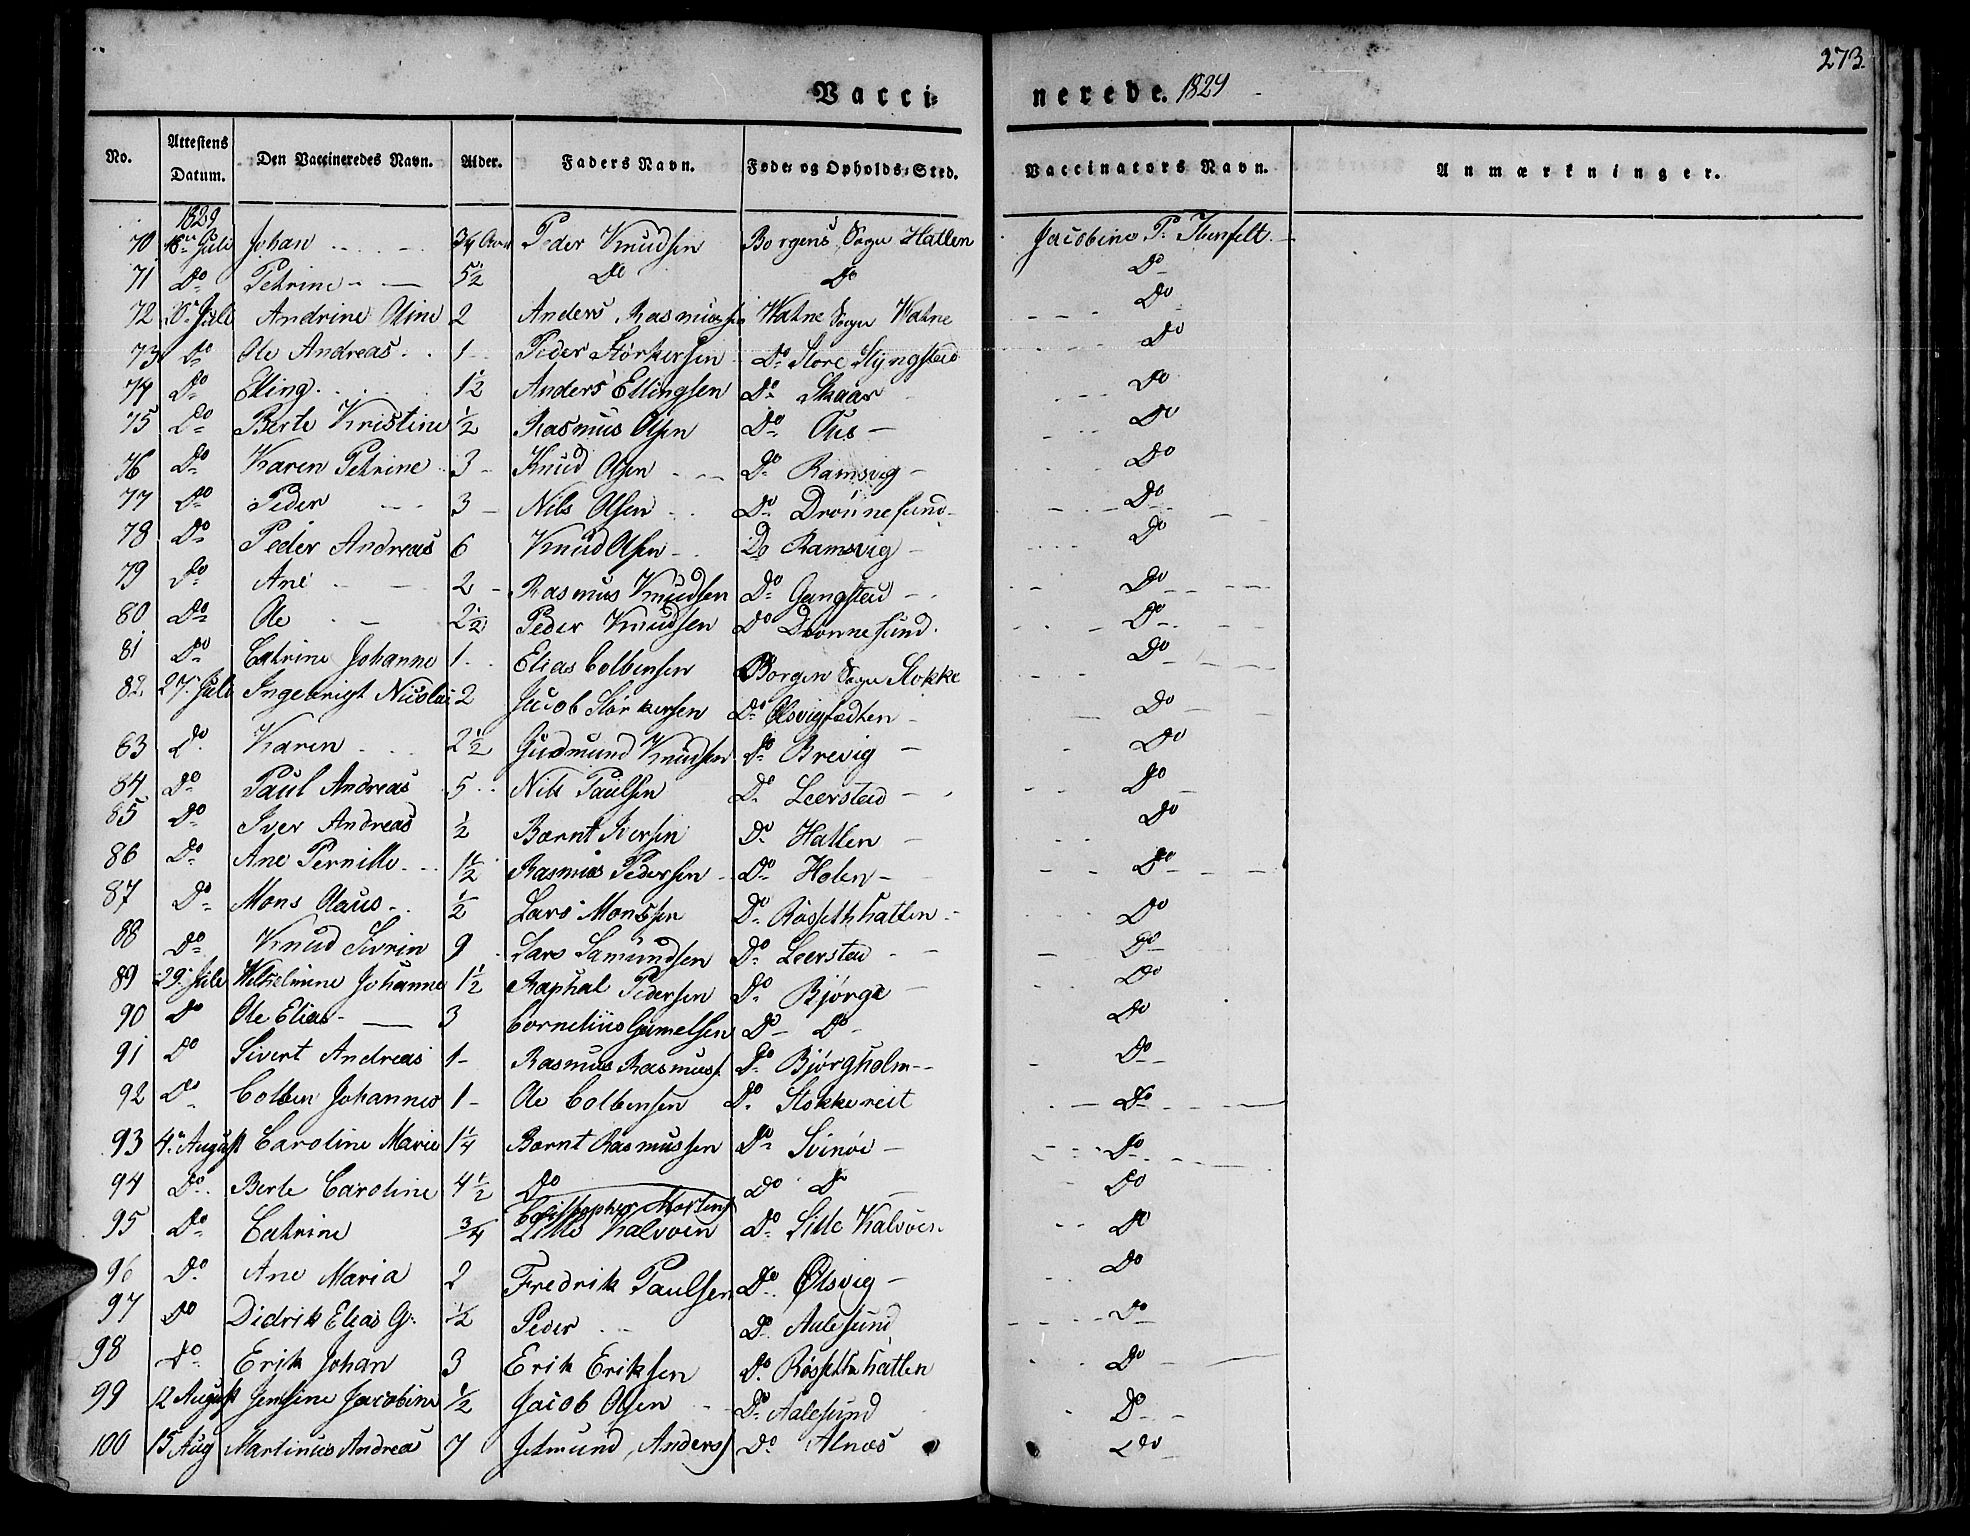 273.
Vacci= nerede. 1829
No. Attestens Datum. Den Vaccineredes Navn. Alder. Faders Navn. Føde= og Opholds=Sted. Vaccinators Navn. Anmærkninger.
1829
70 Juli Johan 3/4 Aar Peder Knudsen Borgens Sogn Hatlen Jacobine P.
71 Do Petrine 5 1/2 Do Do Do
72 20 Juli Andrine Oline 2 Anders Rasmuss Watne Sogn Watne Do
73 Do Ole Andreas 1 Peder Størkersen Do Store Slyngstad Do
74 Do Elling 1 1/2 Anders Ellingsen Do Skaar Do
75 Do Berte Kristine 1/2 Rasmus Olsen Do Do
76 Do Karen Petrine 3 Knud Olsen Do Ramsvig Do
77 Do Peder 3 Nils Olsen Do Drønnesund Do
78 Do Peder Andreas 6 Knud Olsen Do Ramsvig Do
79 Do Ane 2 Rasmus Knudsen Do Gangstad Do
80 Do Ole 2 1/2 Peder Knudsen Do Drønnesund Do
81 Do Catrine Johanne 1 Elias Colbensen Borgen Sogn Stokke Do
82 27. Juli Ingebrigt Nicolai 2 Jacob Størkersen Do Do
83 Do Karen 2 1/2 Gudmund Knudsen Do Brevig Do
84 Do Paul Andreas 5 Nils Paulsen Do Leerstad Do
85 Do Iver Andreas 1/2 Bærnt Iversen Do Hatlen Do
86 Do Ane Pernille 1 1/2 Rasmus Pedersen Do Holen Do
87 Do Mons Olaus 1/2 Lars Monssen Do Røssethhatlen Do
88 Do Knud Sivrin 9 Lars Samundsen Do Leerstad Do
89 29. Juli Wilhelmine Johanne 1 1/2 Raphal Pedersen Do Bjørge Do
90 Do Ole Elias 3 Cornelius Gamelsen Do Do Do
91 Do Sivert Andreas 1 Rasmus Rasmuss Do Bjørgholm Do
92 Do Colben Johannes 1 Ole Colbensen Do Stokkereit Do
93 4. August Caroline Marie 1 1/4 Bærnt Rasmussen Do Svinøe Do
94 Do Berte Caroline 4 1/2 Do Do Do Do
95 Do Catrine 3/4 Christopher Mortens Lille Kalvøen Do Lille Kalvøen Do
96 Do Ane Maria 2 Fredrik Paulsen Do Ølsvig Do
97 Do Didrik Elias G. 1/2 Peder Do Aalesund Do
98 Do Erik Johan 3 Erik Eriksen Do Røssethhatlen Do
99 12 August Jensine Jacobine 1/2 Jacob Olsen Do Aalesund Do
100 15 Aug Martinus Andreas 7 Jetmund Anders Do Alnæs Do